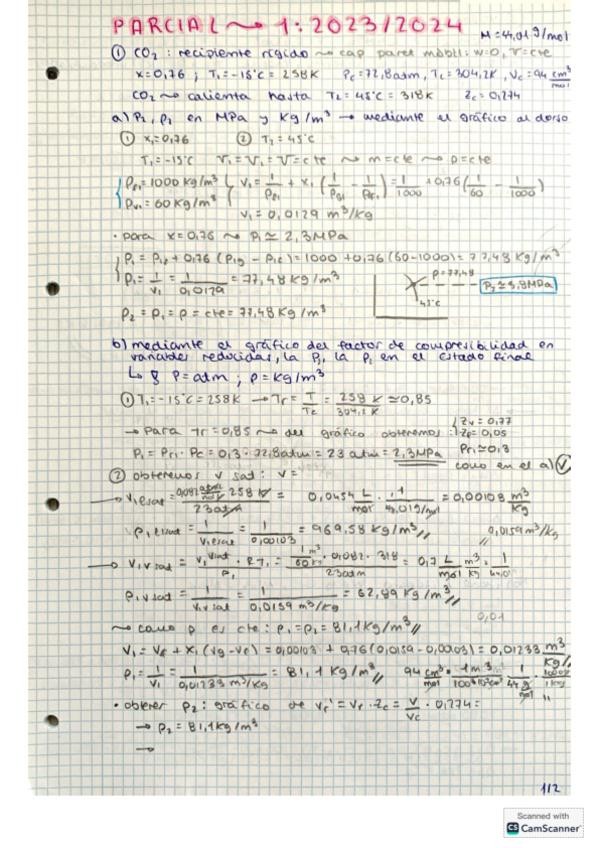 PARCIAL ~> 1: 2023/2024
M = 44,01 g/mol
① CO₂: recipiente rígido ~> cap paret mòbil: w=0, V=cte
x=0,76 ; T₁=-15°C = 258K Pc=72,8adm, Tc=304,2K, Vc=94 cm³/mol
CO₂ ~> calienta hasta T₂=45°C = 318K Zc=0,274
a) P₂, ρ₂ en MPa y Kg/m³ → mediante el gráfico al dorso
① x₁=0,76 ② T₂=45°C
T₁=-15°C V₁=V₂=V=cte ~> m=cte ~> ρ=cte
ρl₁=1000 Kg/m³
ρv₁=60 Kg/m³
v₁ = 1/ρl₁ + x₁ (1/ρg₁ - 1/ρl₁) = 1/1000 + 0,76 (1/60 - 1/1000)
v₁=0,0129 m³/kg
· para x=0,76 ~> P₁ ≃ 2,3MPa
ρ₁ = ρ₁,l + 0,76 (ρ₁g - ρ₁l) = 1000 + 0,76 (60-1000) = 77,48 Kg/m³
ρ₁ = 1/v₁ = 1/0,0129 = 77,48 Kg/m³
ρ=77,48
P₂≃5,8MPa
45°C
ρ₂ = ρ₁ = ρ = cte = 77,48 Kg/m³
b) mediante el gráfico del factor de compresibilidad en
variables reducidas, la P₁, la ρ₂ en el estado final
↳ P=atm ; ρ=kg/m³
① T₁=-15°C=258K → Tr = T/Tc = 258 K/304,2 K ≃ 0,85
→ Para Tr=0,85 ~> del gráfico obtenemos: Zv=0,77 Zl=0,05
P₁ = Pr₁ · Pc = 0,3 · 72,8atm = 23 atm = 2,3MPa Pr₁≃0,3
como en el a) ✓
② obtenemos v sat: v=
→ v₁,l sat = 258 K / 23atm = 0,0454 L/mol · 1/44,01g/mol = 0,00108 m³/Kg
ρ₁,l sat = 1/v₁,l sat = 1/0,00103 = 969,58 Kg/m³ 0,0159 m³/Kg
→ v₁,v sat = 1/60 · 0,082 · 318 / 23atm = 0,7 L/mol
ρ₁,v sat = 1/v₁,v sat = 1/0,0159 m³/Kg = 62,89 Kg/m³
0,01
~> como ρ es cte: ρ₁=ρ₂= 81,1Kg/m³
V₁ = Vl + x₁ (vg-vl) = 0,00103 + 0,76 (0,0159-0,00103) = 0,01233 m³/Kg
ρ₁ = 1/v₁ = 1/0,01233 m³/Kg = 81,1 Kg/m³ 94 cm³/mol
· obtener P₂: gráfico de vr' = vr · Zc = V/Vc · 0,274 =
→ ρ₂ = 81,1Kg/m³
→
1/2
Scanned with
CS CamScanner